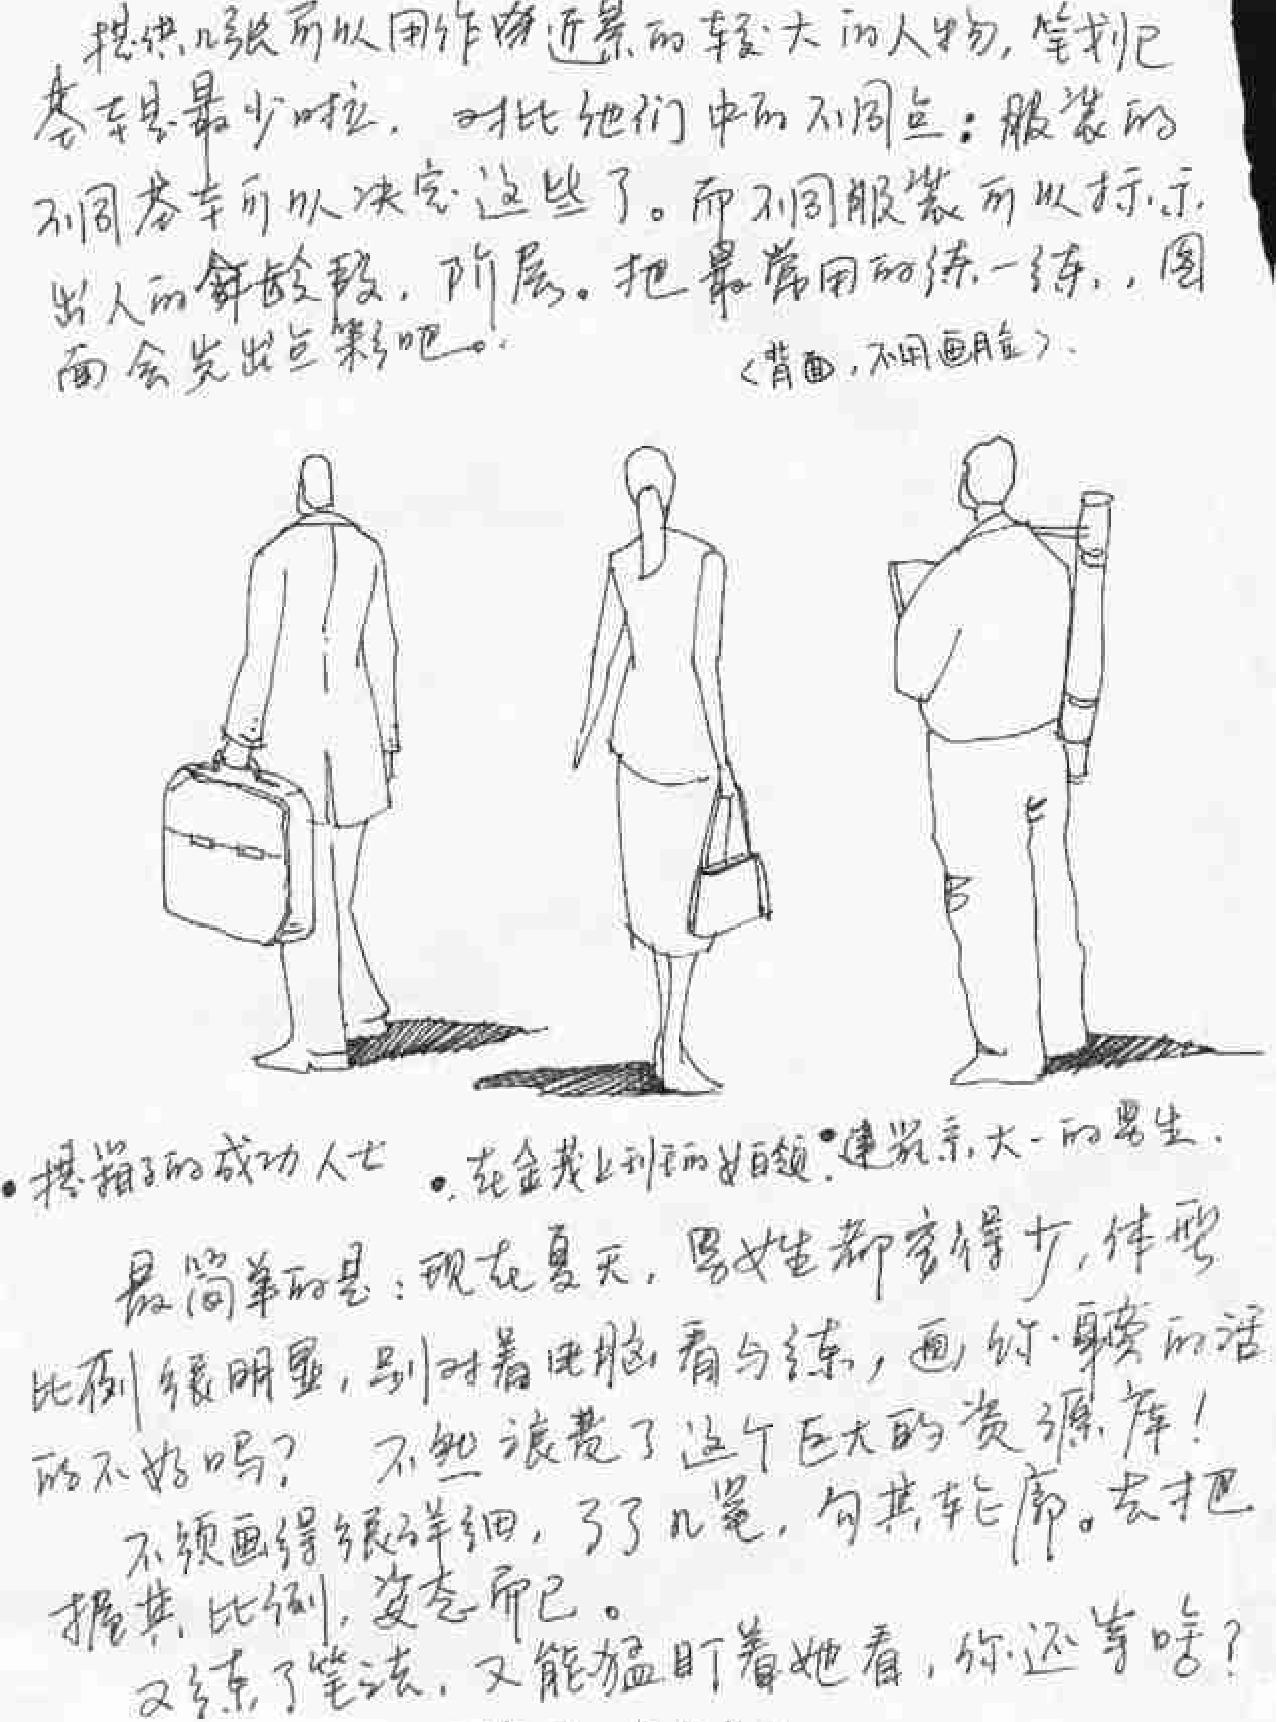 提供几张可以用作啥近景的较大的人物，笔划已
基本是最少啦．对比他们中的不同点：服装的
不同基本可以决定这些了。而不同服装可以标示
出人的年龄段，阶层。把最常用的练一练，图
面会岂出点彩吧。
〈背面，不用画脸〉．
•提箱子的成功人士
•在金茂上班的女白领
•建筑系大一的男生．
最简单的是：现在夏天，男女生都穿得少，体型
比例很明显，别对着电脑看与练，画你身旁的活
的不好吗？不然浪费了这个巨大的资源库！
不须画得很详细，了了几笔，勾其轮廓。去把
握其比例，姿态而已。
又练了笔法，又能猛盯着她看，你还等啥？